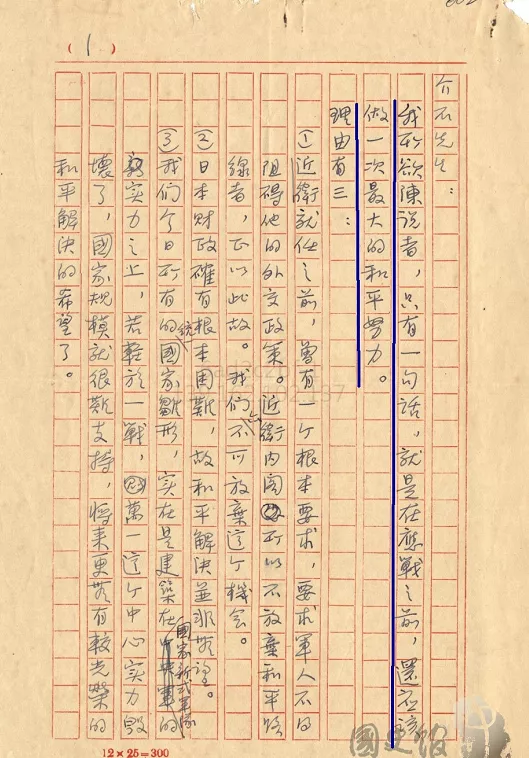 (1)
介石先生：
我所欲陳說者，只有一句話，就是在應戰之前，還應該
做一次最大的和平努力。
理由有三：
①近衛就任之前，曾有一个根本要求，要求軍人不得
阻碍他的外交政策。近衛內閣所以不放棄和平路
線者，正以此故。我們不可放棄這个機會。
②日本財政確有根本困難，故和平解決並非無望。
③我們今日所有的統一國家雛形，实在是建築在國家新式軍隊的
实力之上，若輕於一戰，萬一這个中心实力毀
壞了，國家規模就很難支持，將來更無有較光榮的
和平解決的希望了。
12×25=300
國史館